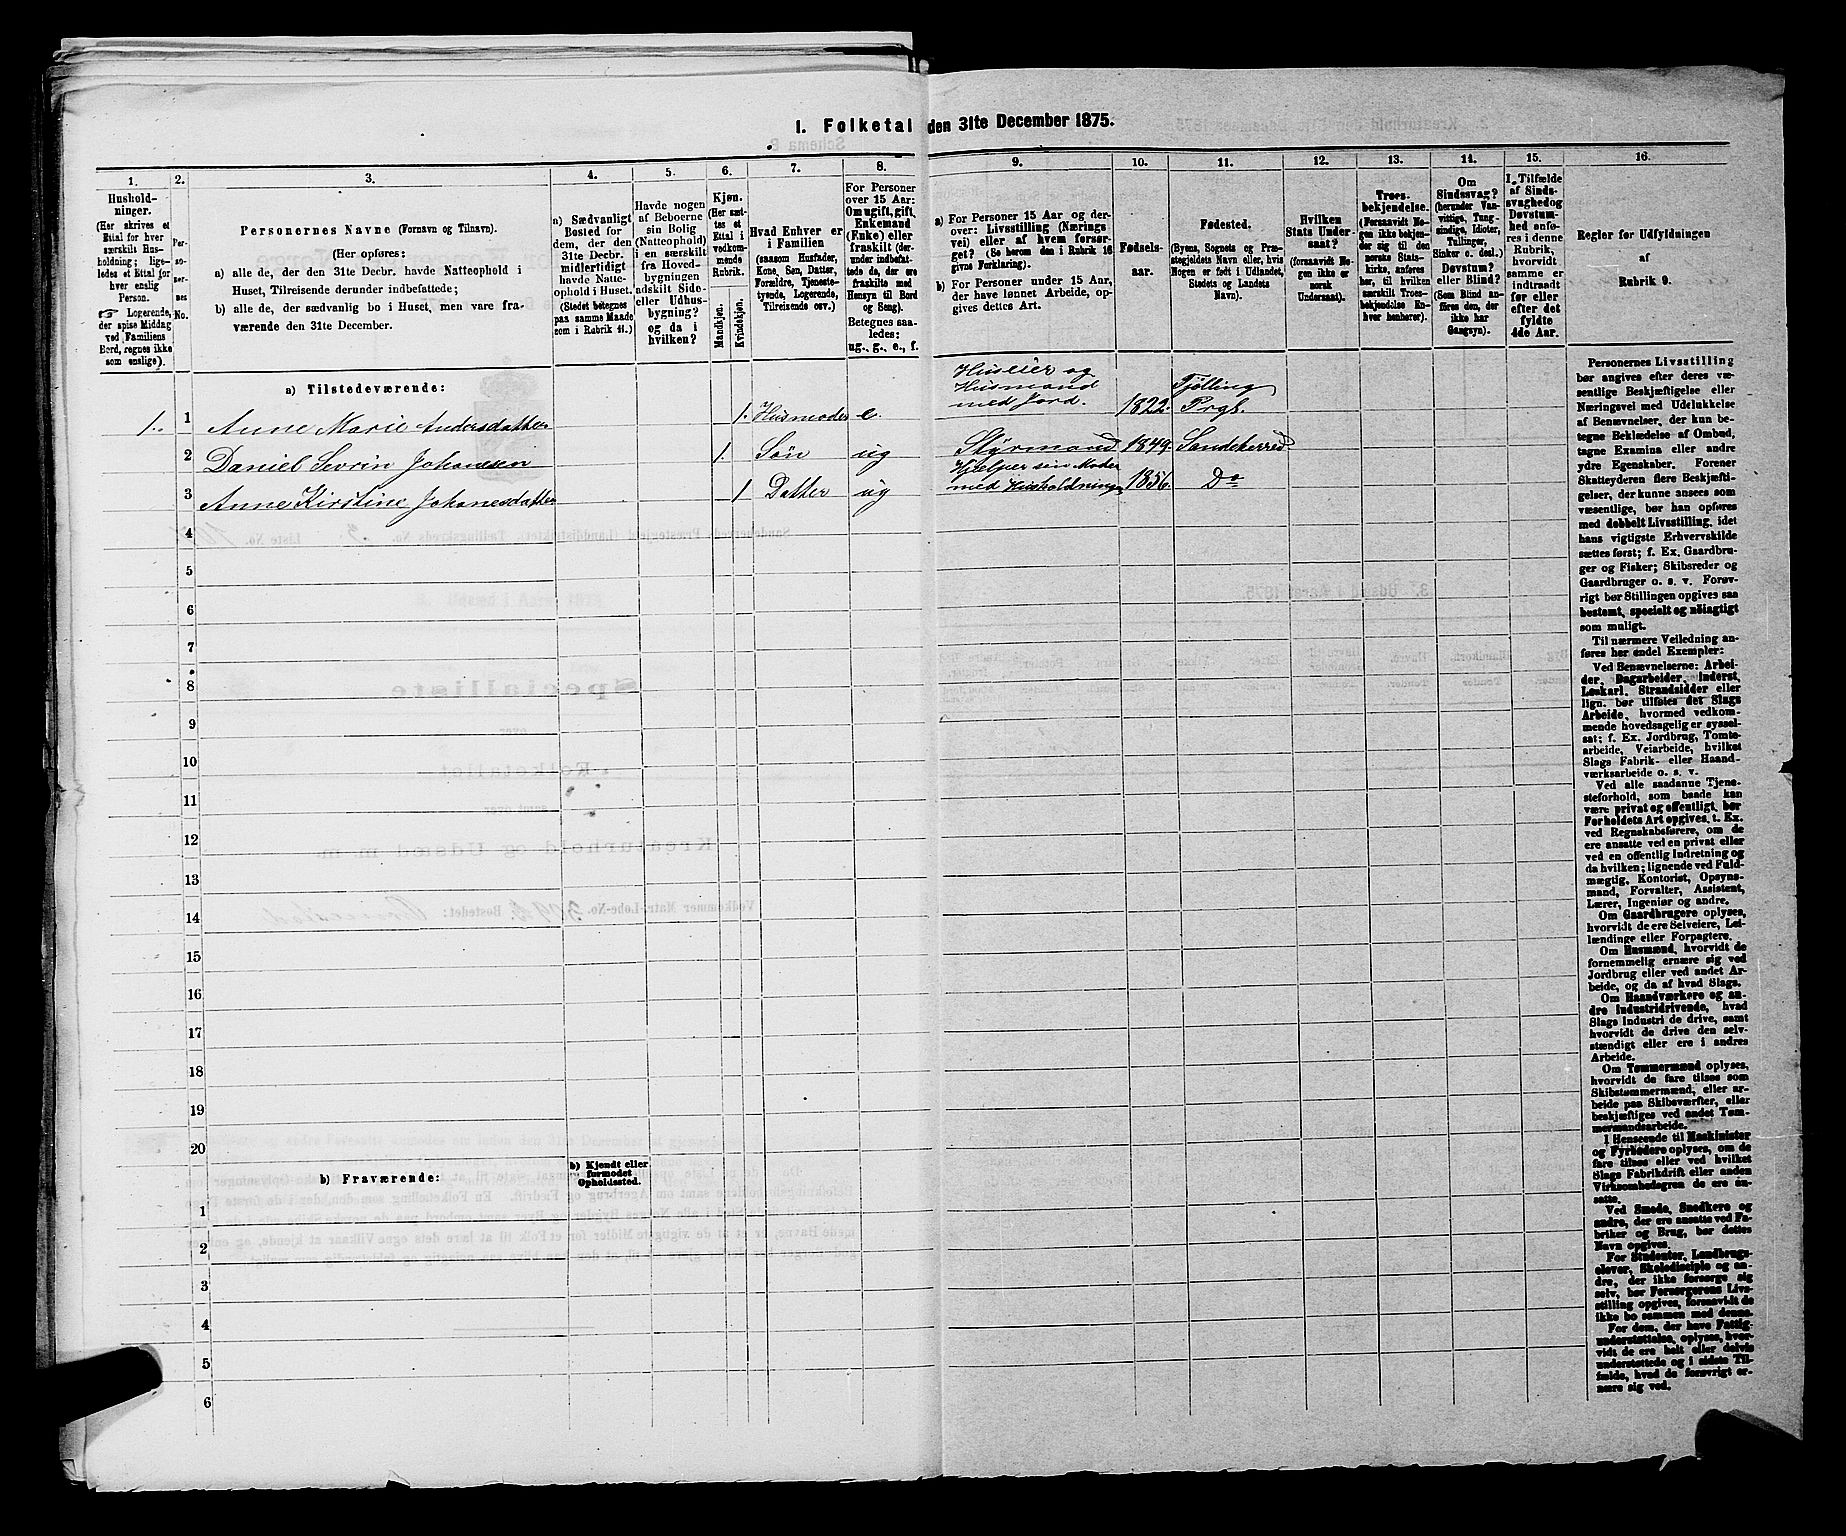 I. Folketal den 31te December 1875.
1.
2.
3.
4.
5.
6.
7.
8.
9.
10.
11.
12.
13.
14.
15.
16.
Hushold-
ninger.
(Her skrives et
Ettal for hver
særskilt Hus-
holdning; lige-
ledes et Ettal for
hver enslig
Person.
☞ Logerende,
der spise Middag
ved Familiens
Bord, regnes ikke
som enslige).
Per-
so-
ner-
nes
No.
Personernes Navne (Fornavn og Tilnavn).
(Her opføres:
a) alle de, der den 31te Decbr. havde Natteophold i
Huset, Tilreisende derunder indbefattede;
b) alle de, der sædvanlig bo i Huset, men vare fra-
værende den 31te December.
a) Sædvanligt
Bosted for
dem, der den
31te Decbr.
midlertidigt
havde Natte-
ophold i Huset.
(Stedet betegnes
paa samme Maade
som i Rubrik 11.)
Havde nogen
af Beboerne
sin Bolig
(Natteophold)
i en særskilt
fra Hoved-
bygningen
adskilt Side-
eller Udhus-
bygning?
og da i
hvilken?
Kjøn.
(Her sæt-
tes et
Ettal i
vedkom-
mende
Rubrik.
Mandkjøn.
Kvindekjøn.
Hvad Enhver er
i Familien
(saasom Husfader,
Kone, Søn, Datter,
Forældre, Tjeneste-
tyende, Logerende,
Tilreisende osv.)
For Personer
over 15 Aar:
Om ugift, gift,
Enkemand
(Enke) eller
fraskilt (der-
under indbefat-
tede de, der ere
fraskilte med
Hensyn til Bord
og Seng).
Betegnes saa-
ledes:
ug., g., e., f.
a) For Personer 15 Aar og der-
over: Livsstilling (Nærings-
vei) eller af hvem forsør-
get? (Se herom den i Rubrik 16
givne Forklaring).
b) For Personer under 15 Aar,
der have lønnet Arbeide, op-
gives dettes Art.
Fødsels-
aar.
Fødested.
(Byens, Sognets og Præ-
stegjeldets Navn eller, hvis
Nogen er født i Udlandet,
Stedets og Landets
Navn).
Hvilken
Stats Under-
saat?
(foraavidt No-
gen ikke er
norsk
Undersaat).
Troes-
bekjendelse.
(Foraavidt No-
gen ikke bekjen-
der sig til den
norske Stats-
kirke, anføres
her, til hvilken
særskilt Troes-
bekjendelse En-
hver henhører).
Om
Sindssvag?
(herunder Van-
vittige, Tung-
sindige, Idioter,
Tullinger,
Sinker o. desl.)
Døvstum?
eller Blind?
(Som Blind an-
føres den, der
ikke har
Gangsyn).
I Tilfælde
af Sinds-
svaghed og
Døvstum-
hed anfø-
res i denne
Rubrik,
hvorvidt
samme er
indtraadt
før eller
efter det
fyldte
4de Aar.
Regler for Udfyldningen
af
Rubrik 9.
a) Tilstedeværende:
1. 1 Anne Marie Andersdatter 1. Husmoder e. Huseier og Husmand med Jord. 1822. Tjølling Prgl.
2 Daniel Sevrin Johanesen 1. Søn ug Styrmand 1849. Sandeherred
3 Anne Kirstine Johanesdatter 1 Datter ug Hjelper sin Moder med Husholdningen 1856. Do
4
5
6
7
8
9
10
11
12
13
14
15
16
17
18
19
20
b) Fraværende:
b) Kjendt eller
formodet
Opholdssted.
1
2
3
4
5
6
Personernes Livsstilling
bør angives efter deres væ-
sentlige Beskjæftigelse eller
Næringsvei med Udelukkelse
af Benævnelser, der kun be-
tegne Beklædelse af Ombud,
tagne Examina eller andre
ydre Egenskaber. Forener
Skatteyderen flere Beskjæfti-
gelser, der kunne ansees som
væsentlige, bør han opføres
med dobbelt Livsstilling, idet
hans vigtigste Erhvervskilde
sættes først; f. Ex. Gaardbru-
ger og Fisker; Skibsreder og
Gaardbruger o. s. v. Forøv-
rigt bør Stillingen opgives saa
bestemt, specielt og nøiagtigt
som muligt.
Til nærmere Veiledning an-
føres her endel Exempler:
Ved Benævnelserne: Arbei-
der, Dagarbeider, Inderst,
Løskarl, Strandsidder eller
lign. bør tilføies det Slags
Arbeide, hvormed vedkom-
mende hovedsagelig er syssel-
sat; f. Ex. Jordbrug, Tomte-
arbeide, Veiarbeide, hvilket
Slags Fabrik- eller Haand-
værksarbeide o. s. v.
Ved alle saadanne Tjene-
steforhold, som baade kan
være privat og offentligt, bør
Forholdets Art opgives, t. Ex.
ved Regnskabsførere, om de
ere ansatte ved en privat eller
ved en offentlig Indretning og
da hvilken; lignende ved Fuld-
mægtig, Kontorist, Opsyns-
mand, Forvalter, Assistent,
Lærer, Ingeniør og andre.
Om Gaardbrugere oplyses,
hvorvidt de ere Selveiere, Lei-
lændinge eller Forpagtere.
Om Husmænd, hvorvidt de
fornemmelig ernære sig ved
Jordbrug eller ved andet Ar-
beide, og da af hvad Slags.
Om Haandværkere og an-
dre Industridrivende, hvad
Slags Industri de drive, samt
hvorvidt de drive den selv-
stændigt eller ere i andres
Arbeide.
Om Tømmermænd oplyses,
hvorvidt de fare tilsøs som
Skibstømmermænd, eller ar-
beide paa Skibsværfter, eller
beskjæftiges ved andet Tøm-
mermandsarbeide.
I Henseende til Maskinister
og Fyrbødere oplyses, om de
fare tilsøs eller ved hvilket
Slags Fabrikdrift eller anden
Virksomhedsgren de ere an-
satte.
Ved Smede, Snedkere og
andre, der ere ansatte ved Fa-
briker og Brug, bør dettes
Navn opgives.
For Studenter, Landbrugs-
elever, Skoledisciple og an-
dre, der ikke forsørge sig
selv, bør Forsørgerens Livs-
stilling opgives, foraavidt de
ikke bo sammen med denne.
For dem, der have Fattig-
understøttelse, oplyses, hvor-
vidt de ere helt eller delvis
understøttede og i sidste Til-
fælde, hvad de forøvrigt er-
nære sig ved.